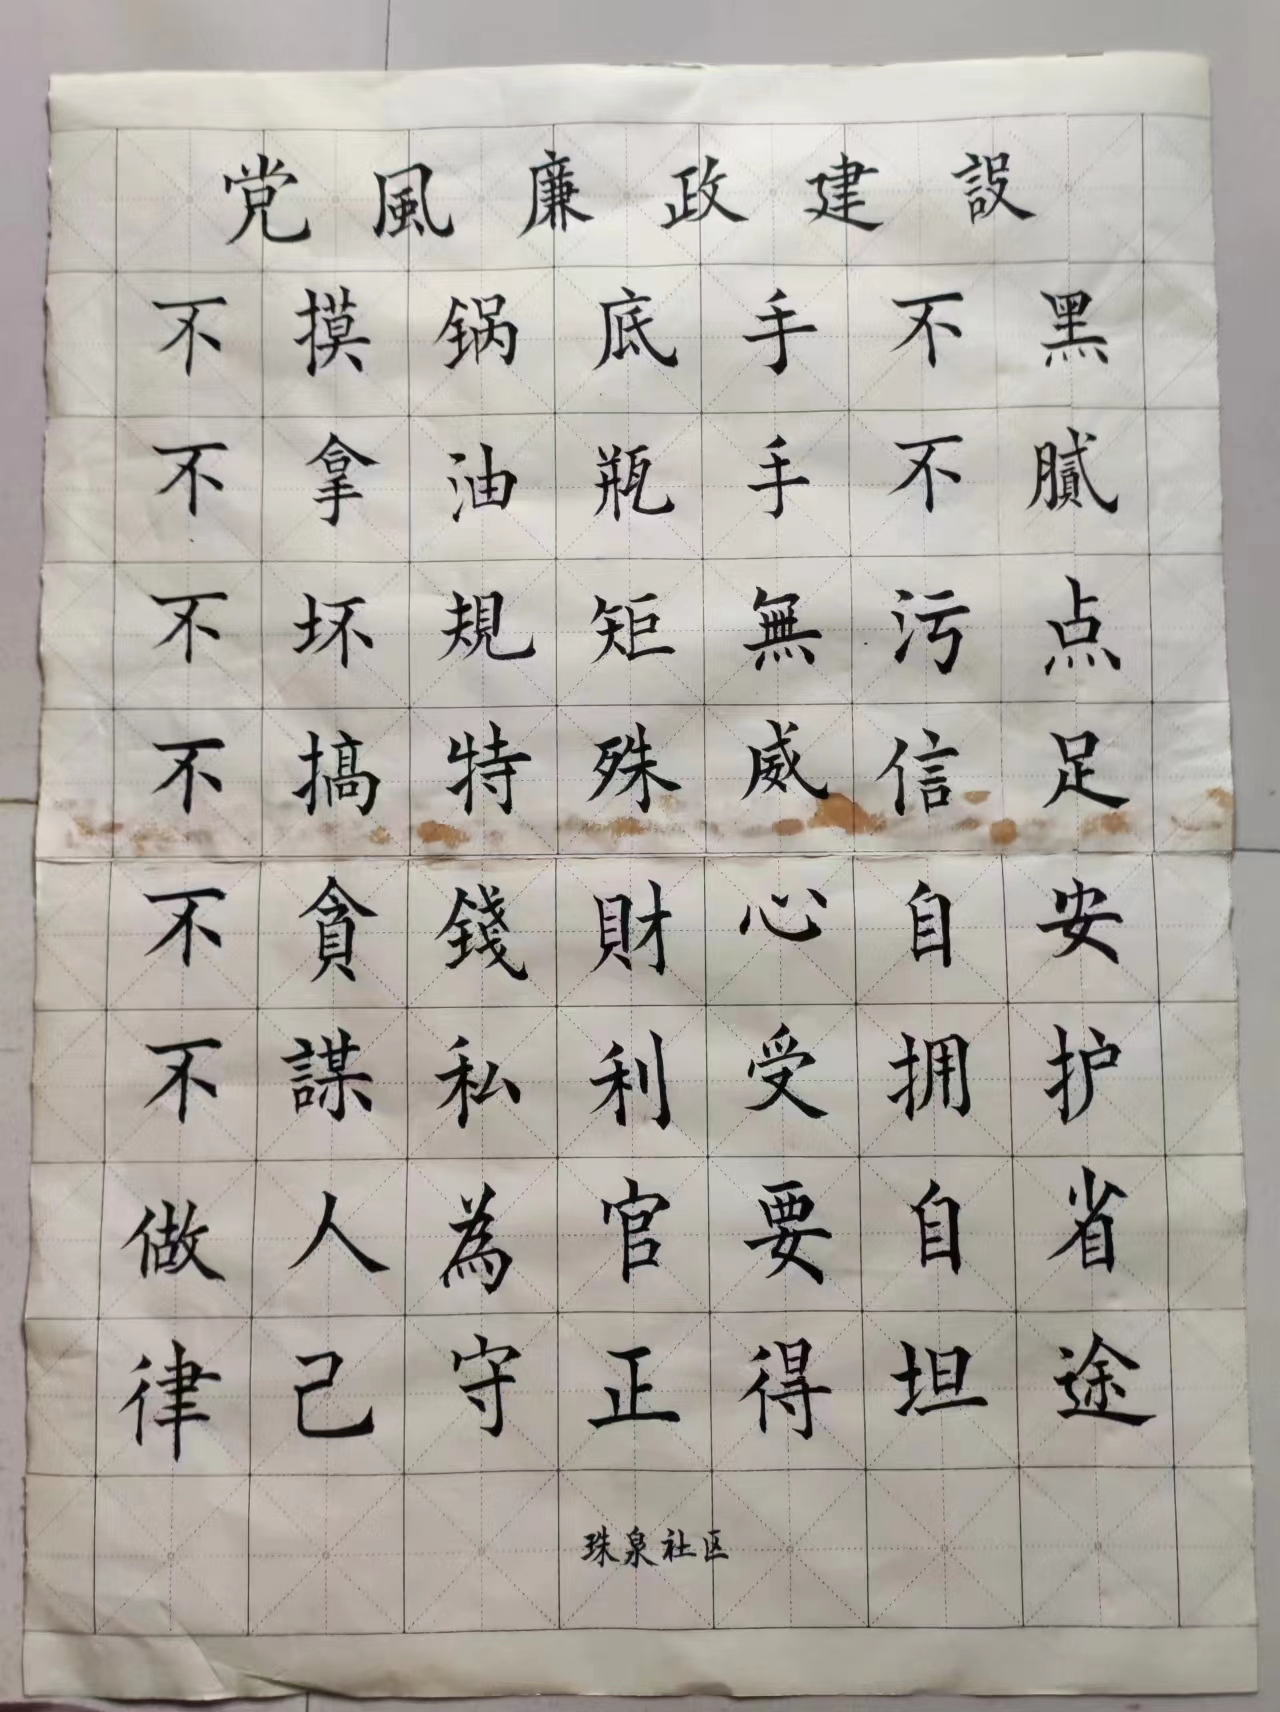 党風廉政建設
不摸锅底手不黑
不拿油瓶手不膩
不坏規矩無污点
不搞特殊威信足
不貪錢財心自安
不謀私利受拥护
做人為官要自省
律己守正得坦途
珠泉社区